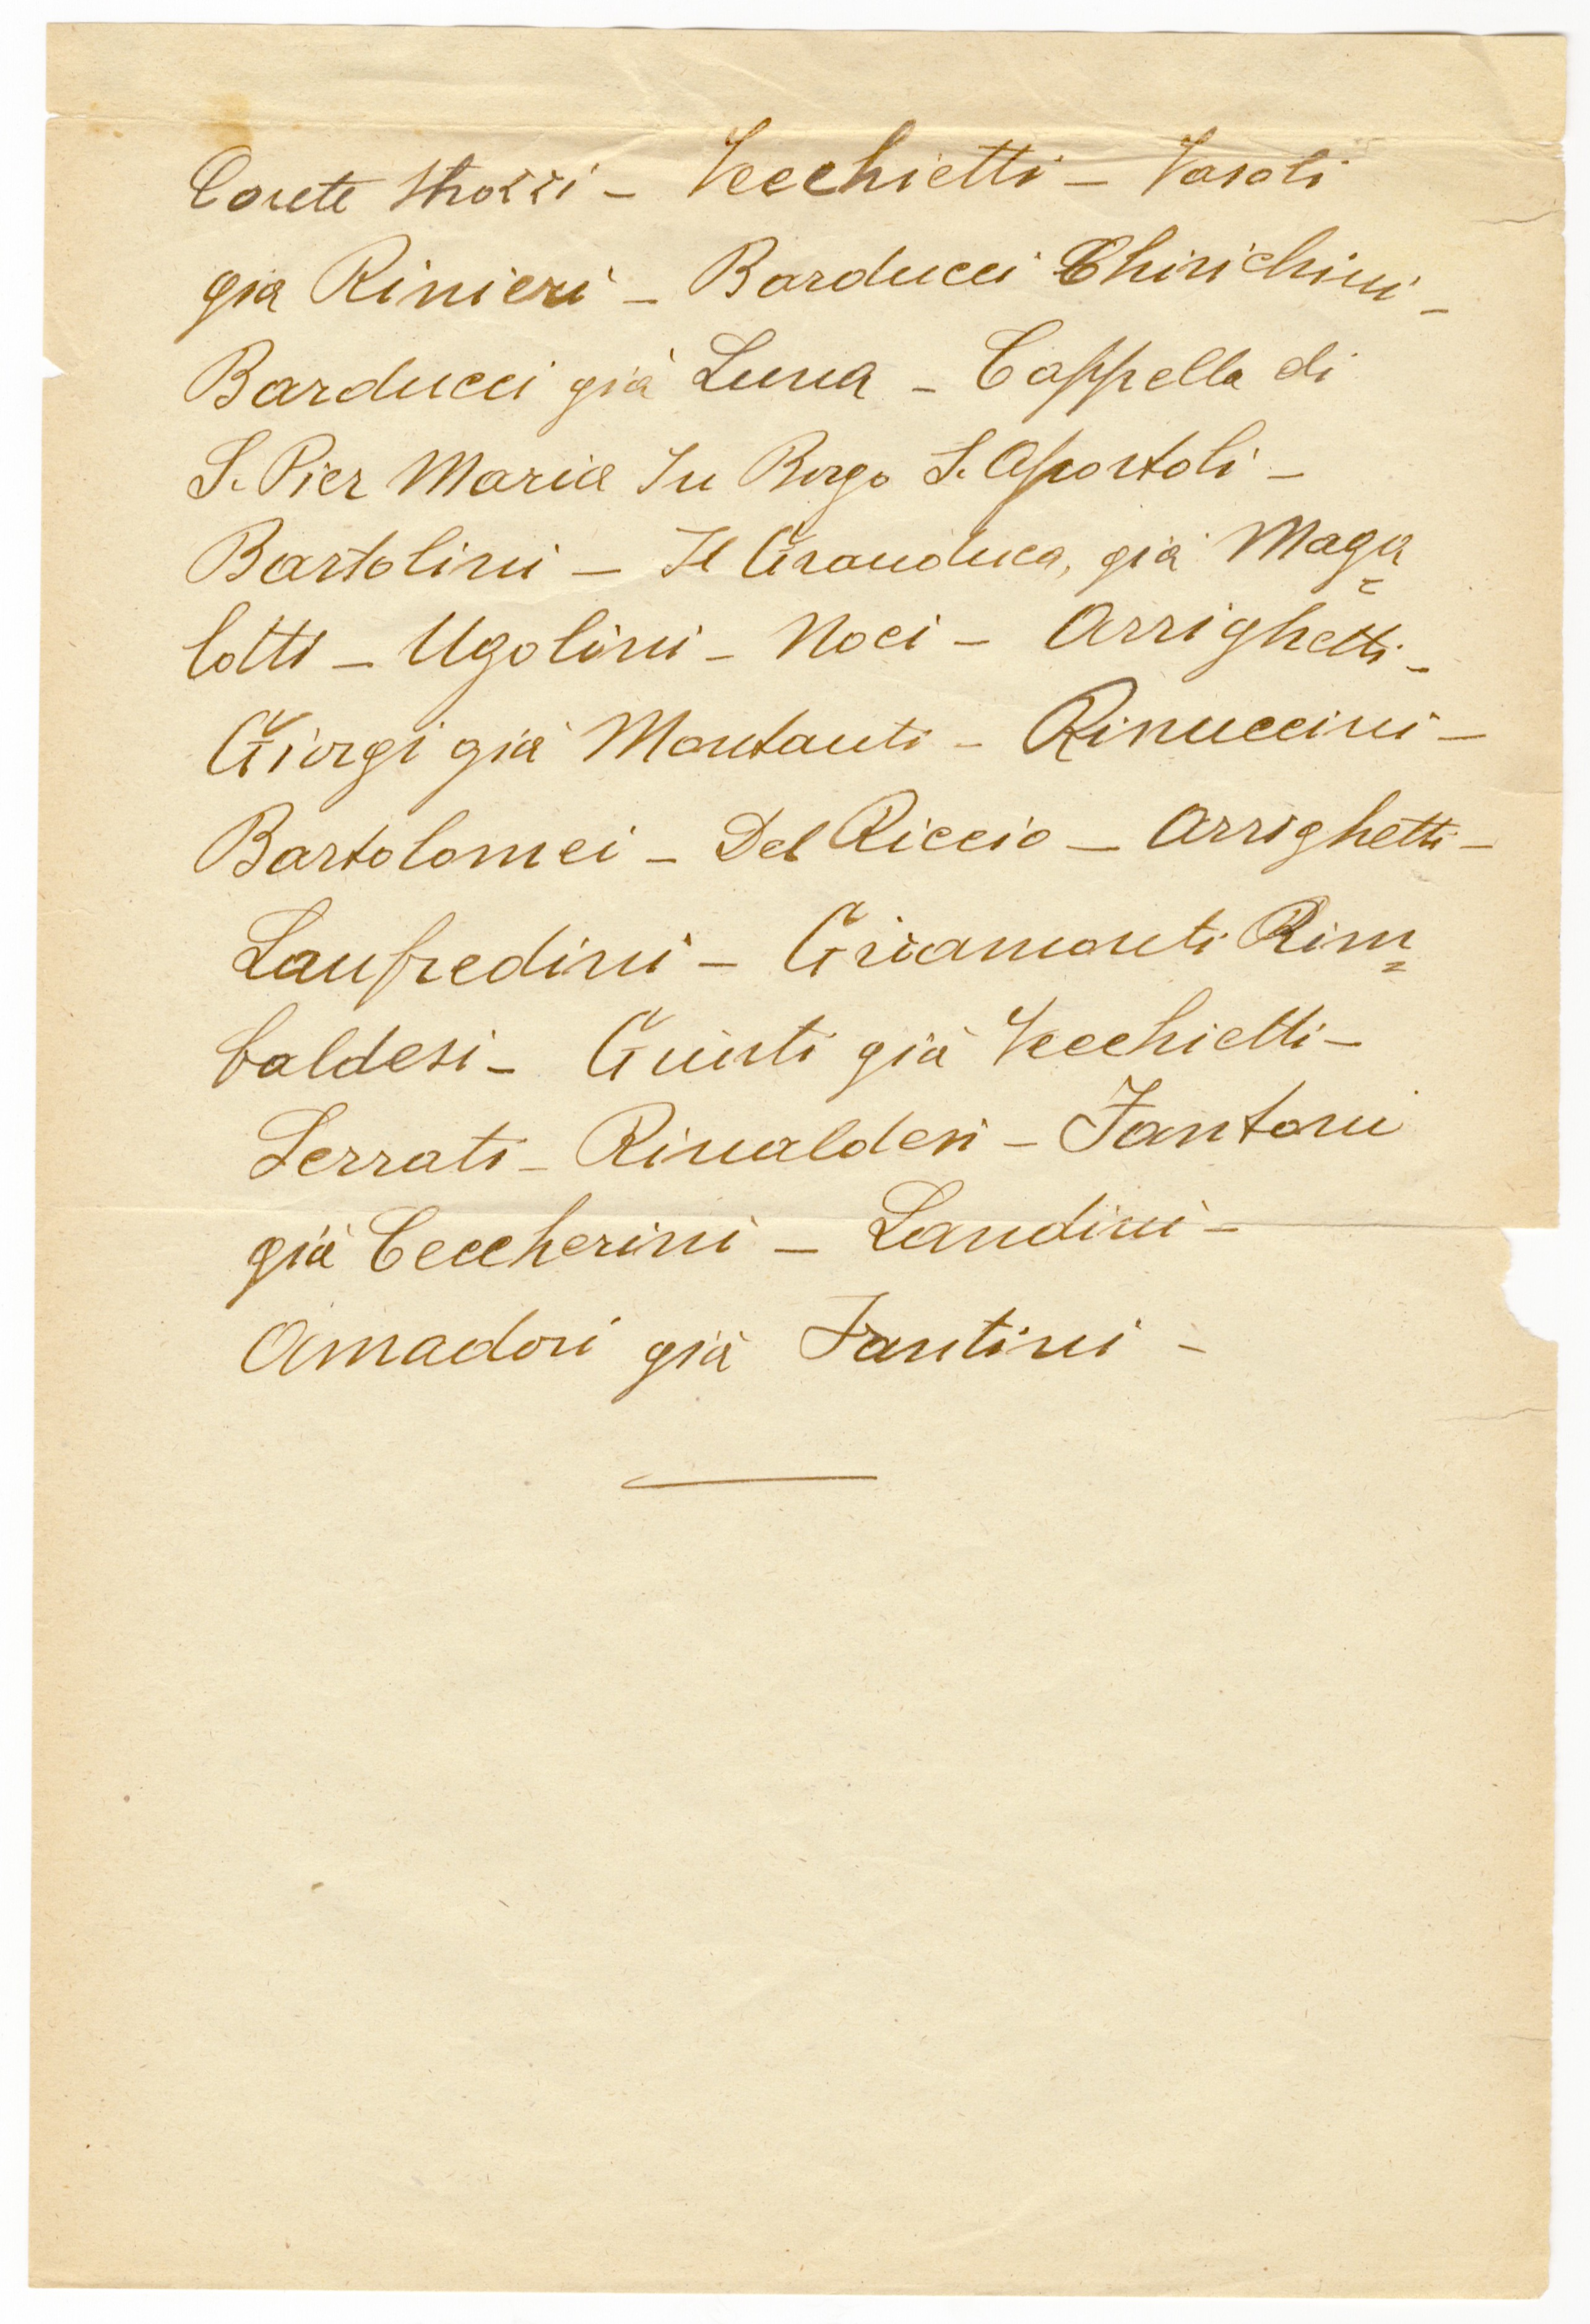 Conte Strozzi - Vecchietti - Vasoli
già Rinieri - Barducci Chirichini -
Barducci già Luna - Cappella di
S. Pier Maria In Borgo S. Apostoli -
Bartolini - Il Granduca, già Maga=
lotti - Ugolini - Noci - Arrighetti -
Giorgi già Montauti - Rinuccini -
Bartolomei - Del Riccio - Arrighetti -
Lanfredini - Giramonti Rim=
baldesi - Giusti già Vecchietti -
Serrati - Rinaldesi - Fantoni
già Ceccherini - Landini -
Amadori già Fantini -